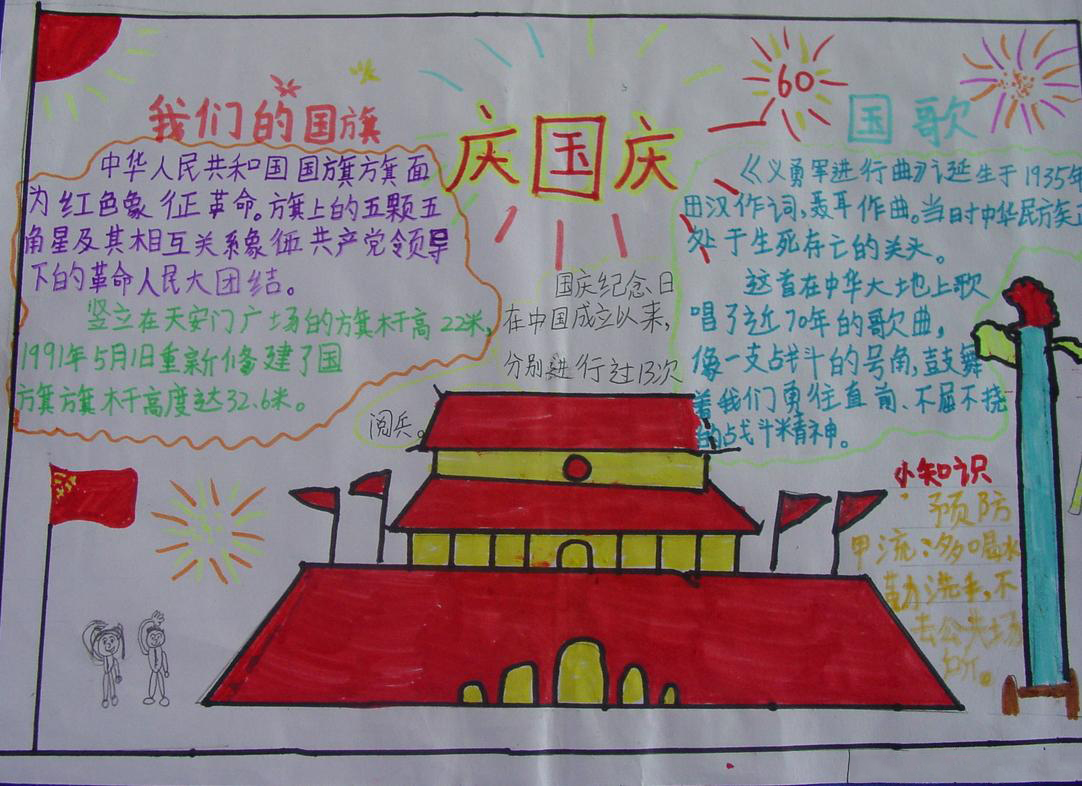 我们的国旗
中华人民共和国国旗旗面
为红色象征革命。旗上的五颗五
角星及其相互关系象征共产党领导
下的革命人民大团结。
竖立在天安门广场的旗杆高22米,
1991年5月1日重新修建了国
旗旗杆高度达32.6米。
庆国庆
国庆纪念日
在中国成立以来,
分别进行过13次
阅兵。
60
国歌
《义勇军进行曲》诞生于1935年
田汉作词,聂耳作曲。当时中华民族正
处于生死存亡的关头。
这首在中华大地上歌
唱了近70年的歌曲,
像一支战斗的号角,鼓舞
着我们勇往直前、不屈不挠
的战斗精神。
小知识
预防
甲流:多喝水
勤洗手,不
去公共场
所。